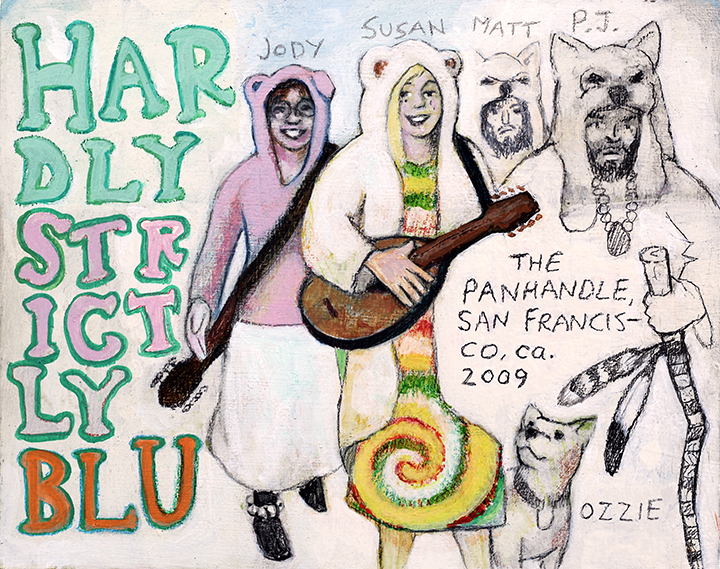 HAR
DLY
STR
ICT
LY
BLU
JODY
SUSAN
MATT
P.J.
THE
PANHANDLE,
SAN FRANCIS-
CO, CA.
2009
OZZIE